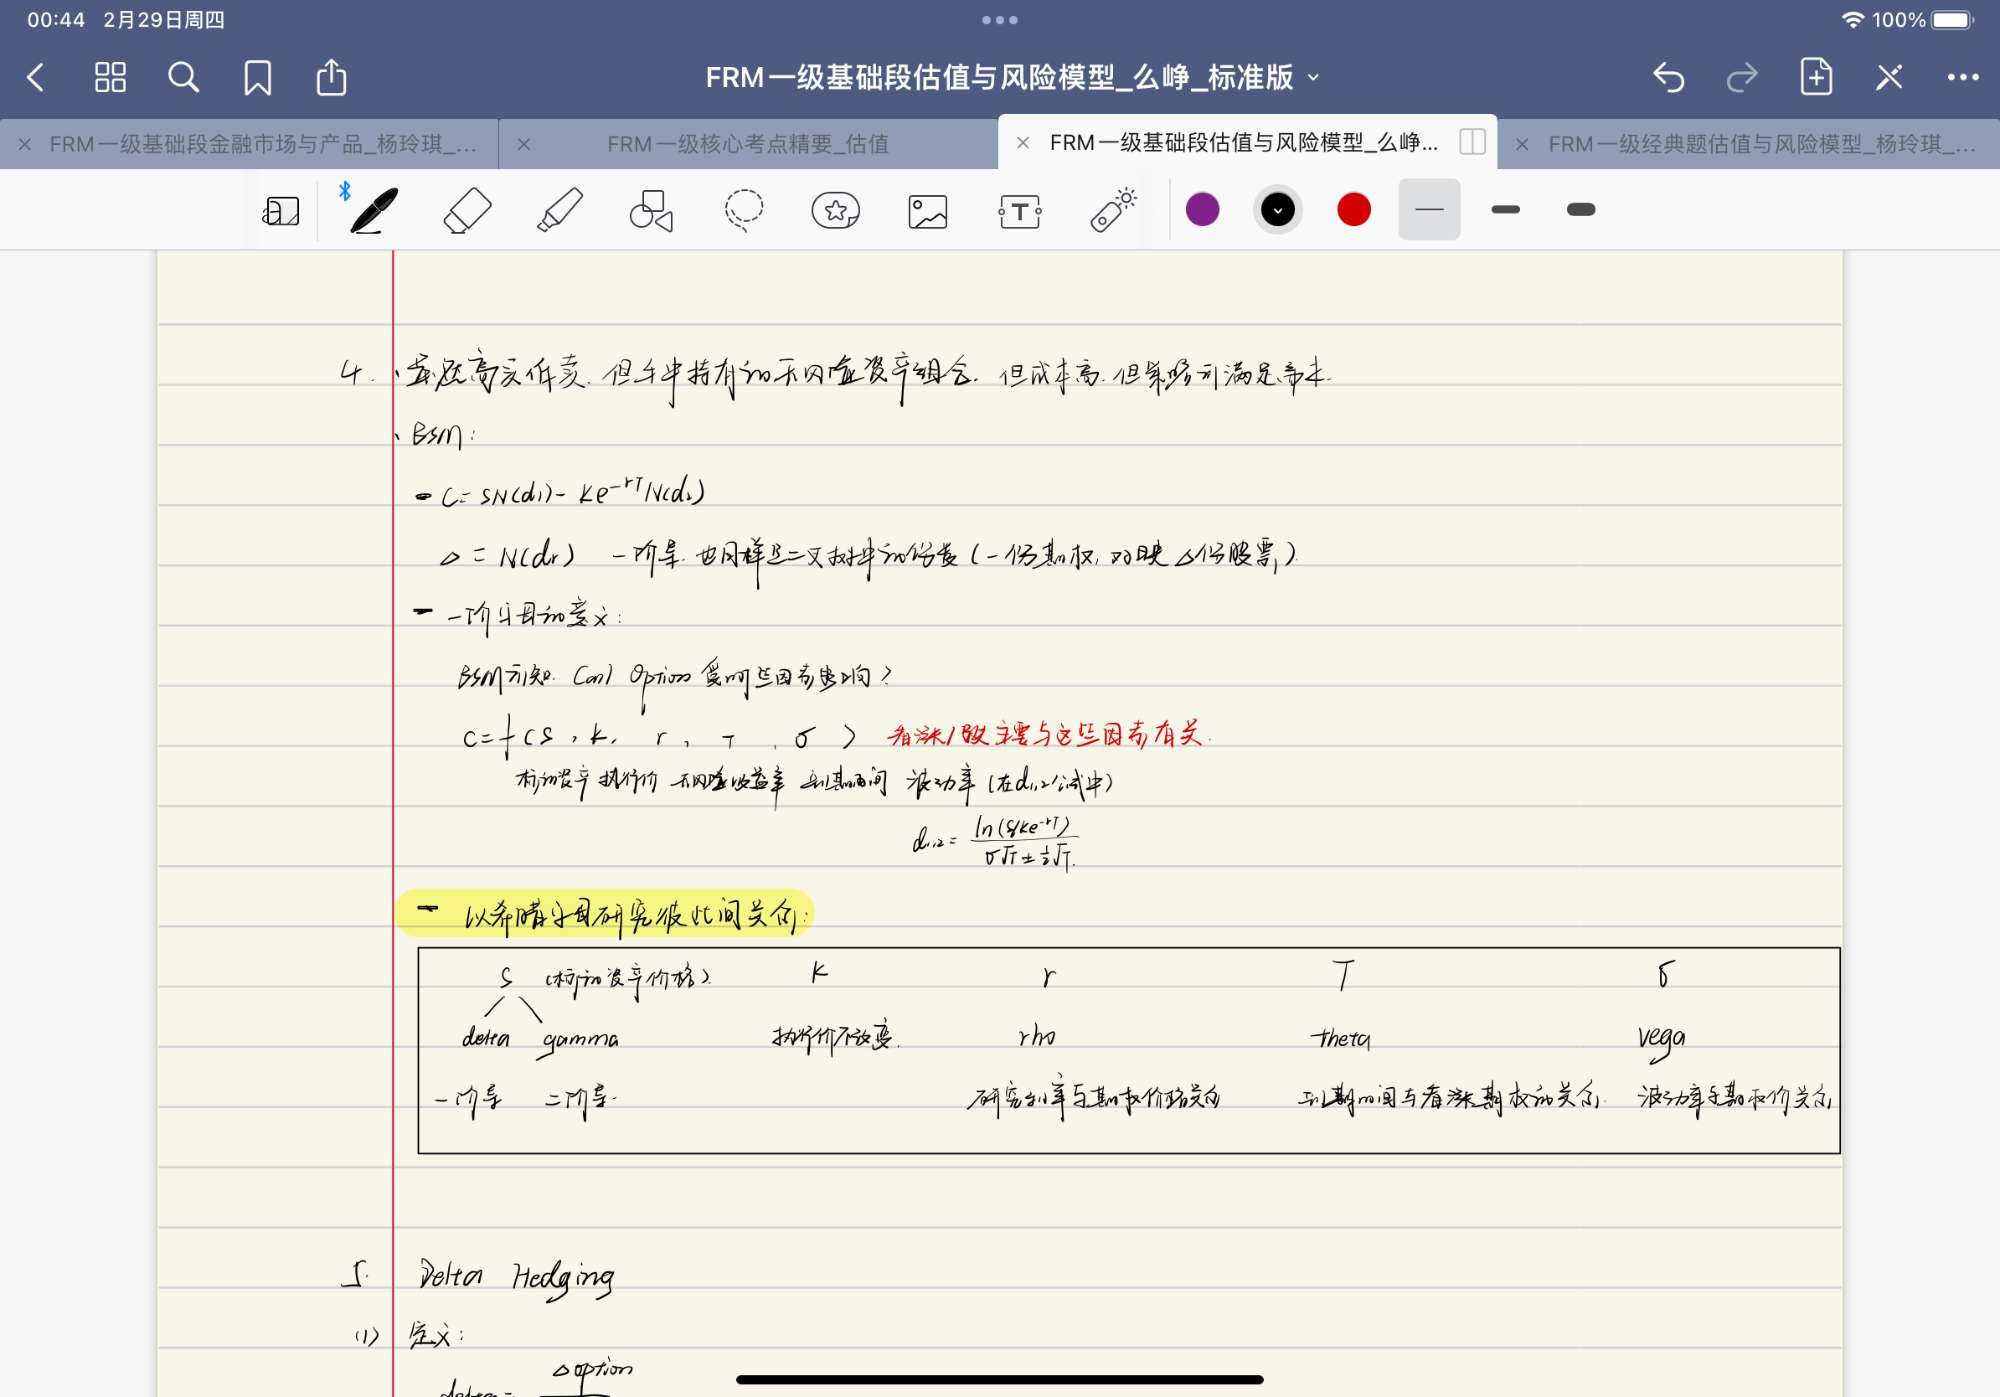 00:44 2月29日周四 100%
FRM一级基础段估值与风险模型_么峥_标准版
FRM一级基础段金融市场与产品_杨玲琪_...
FRM一级核心考点精要_估值
FRM一级基础段估值与风险模型_么峥...
FRM一级经典题估值与风险模型_杨玲琪_...
4. 高买低卖. 但手中持有的无风险资产组合. 但成本高. 但策略可满足需求.
、BSM:
- C = SN(d₁) - Ke^-rT N(d₂)
Δ = N(d₁) 一阶导. 也同样是二叉树中的份数 (一份期权, 对映Δ份股票)
- 一阶字母的意义:
BSM可知. Call Option 受哪些因素影响?
C = f(S, K, r, T, σ) 看涨期权主要与这些因素有关.
标的资产 执行价 无风险收益率 到期时间 波动率 (在d₁,₂公式中)
d₁,₂ = ln(S/Ke^-rT) / σ√T ± ½√T.
- 以希腊字母研究彼此间关系:
S (标的资产价格) K r T σ
delta gamma 执行价不改变. rho theta vega
一阶导 二阶导. 研究利率与期权价格关系 到期时间与看涨期权的关系. 波动率与期权价关系
5. Delta Hedging
(1) 定义:
Δoption
delta =